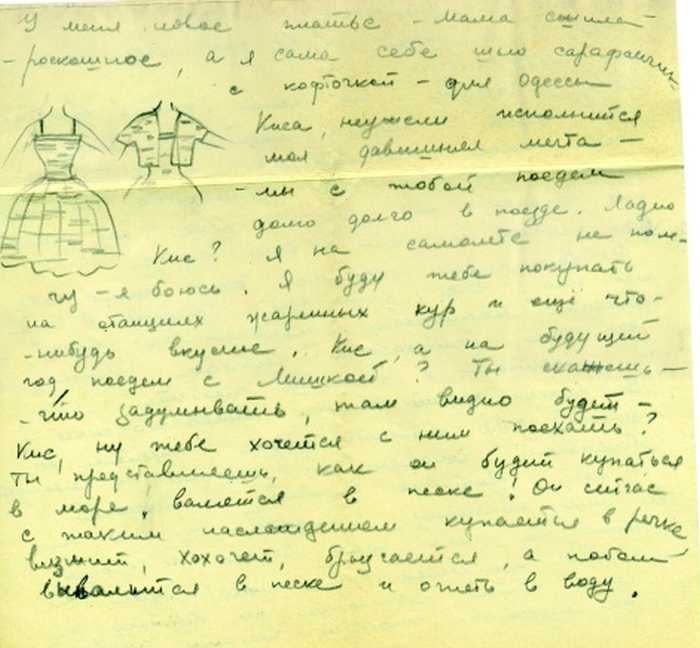 У меня новое платье - мама сшила -
- роскошное, а я сама себе шью сарафанчик
с кофточкой - для Одессы
Киса, неужели исполнится
моя давишняя мечта -
- мы с тобой поедем
долго долго в поезде. Ладно
Кис? Я на самолете не поле-
чу - я боюсь. Я буду тебе покупать
на станциях жареных кур и ещё что-
-нибудь вкусное. Кис, а на будущий
год поедем с Мишкой? Ты скажешь -
- что задумывать, там видно будет -
Кис, ну тебе хочется с ним поехать?
Ты представляешь, как он будет купаться
в море, валятся в песке! Он сейчас
с таким наслаждением купается в речке
визжит, хохочет, брызгается, а потом
вываляится в песке и опять в воду.